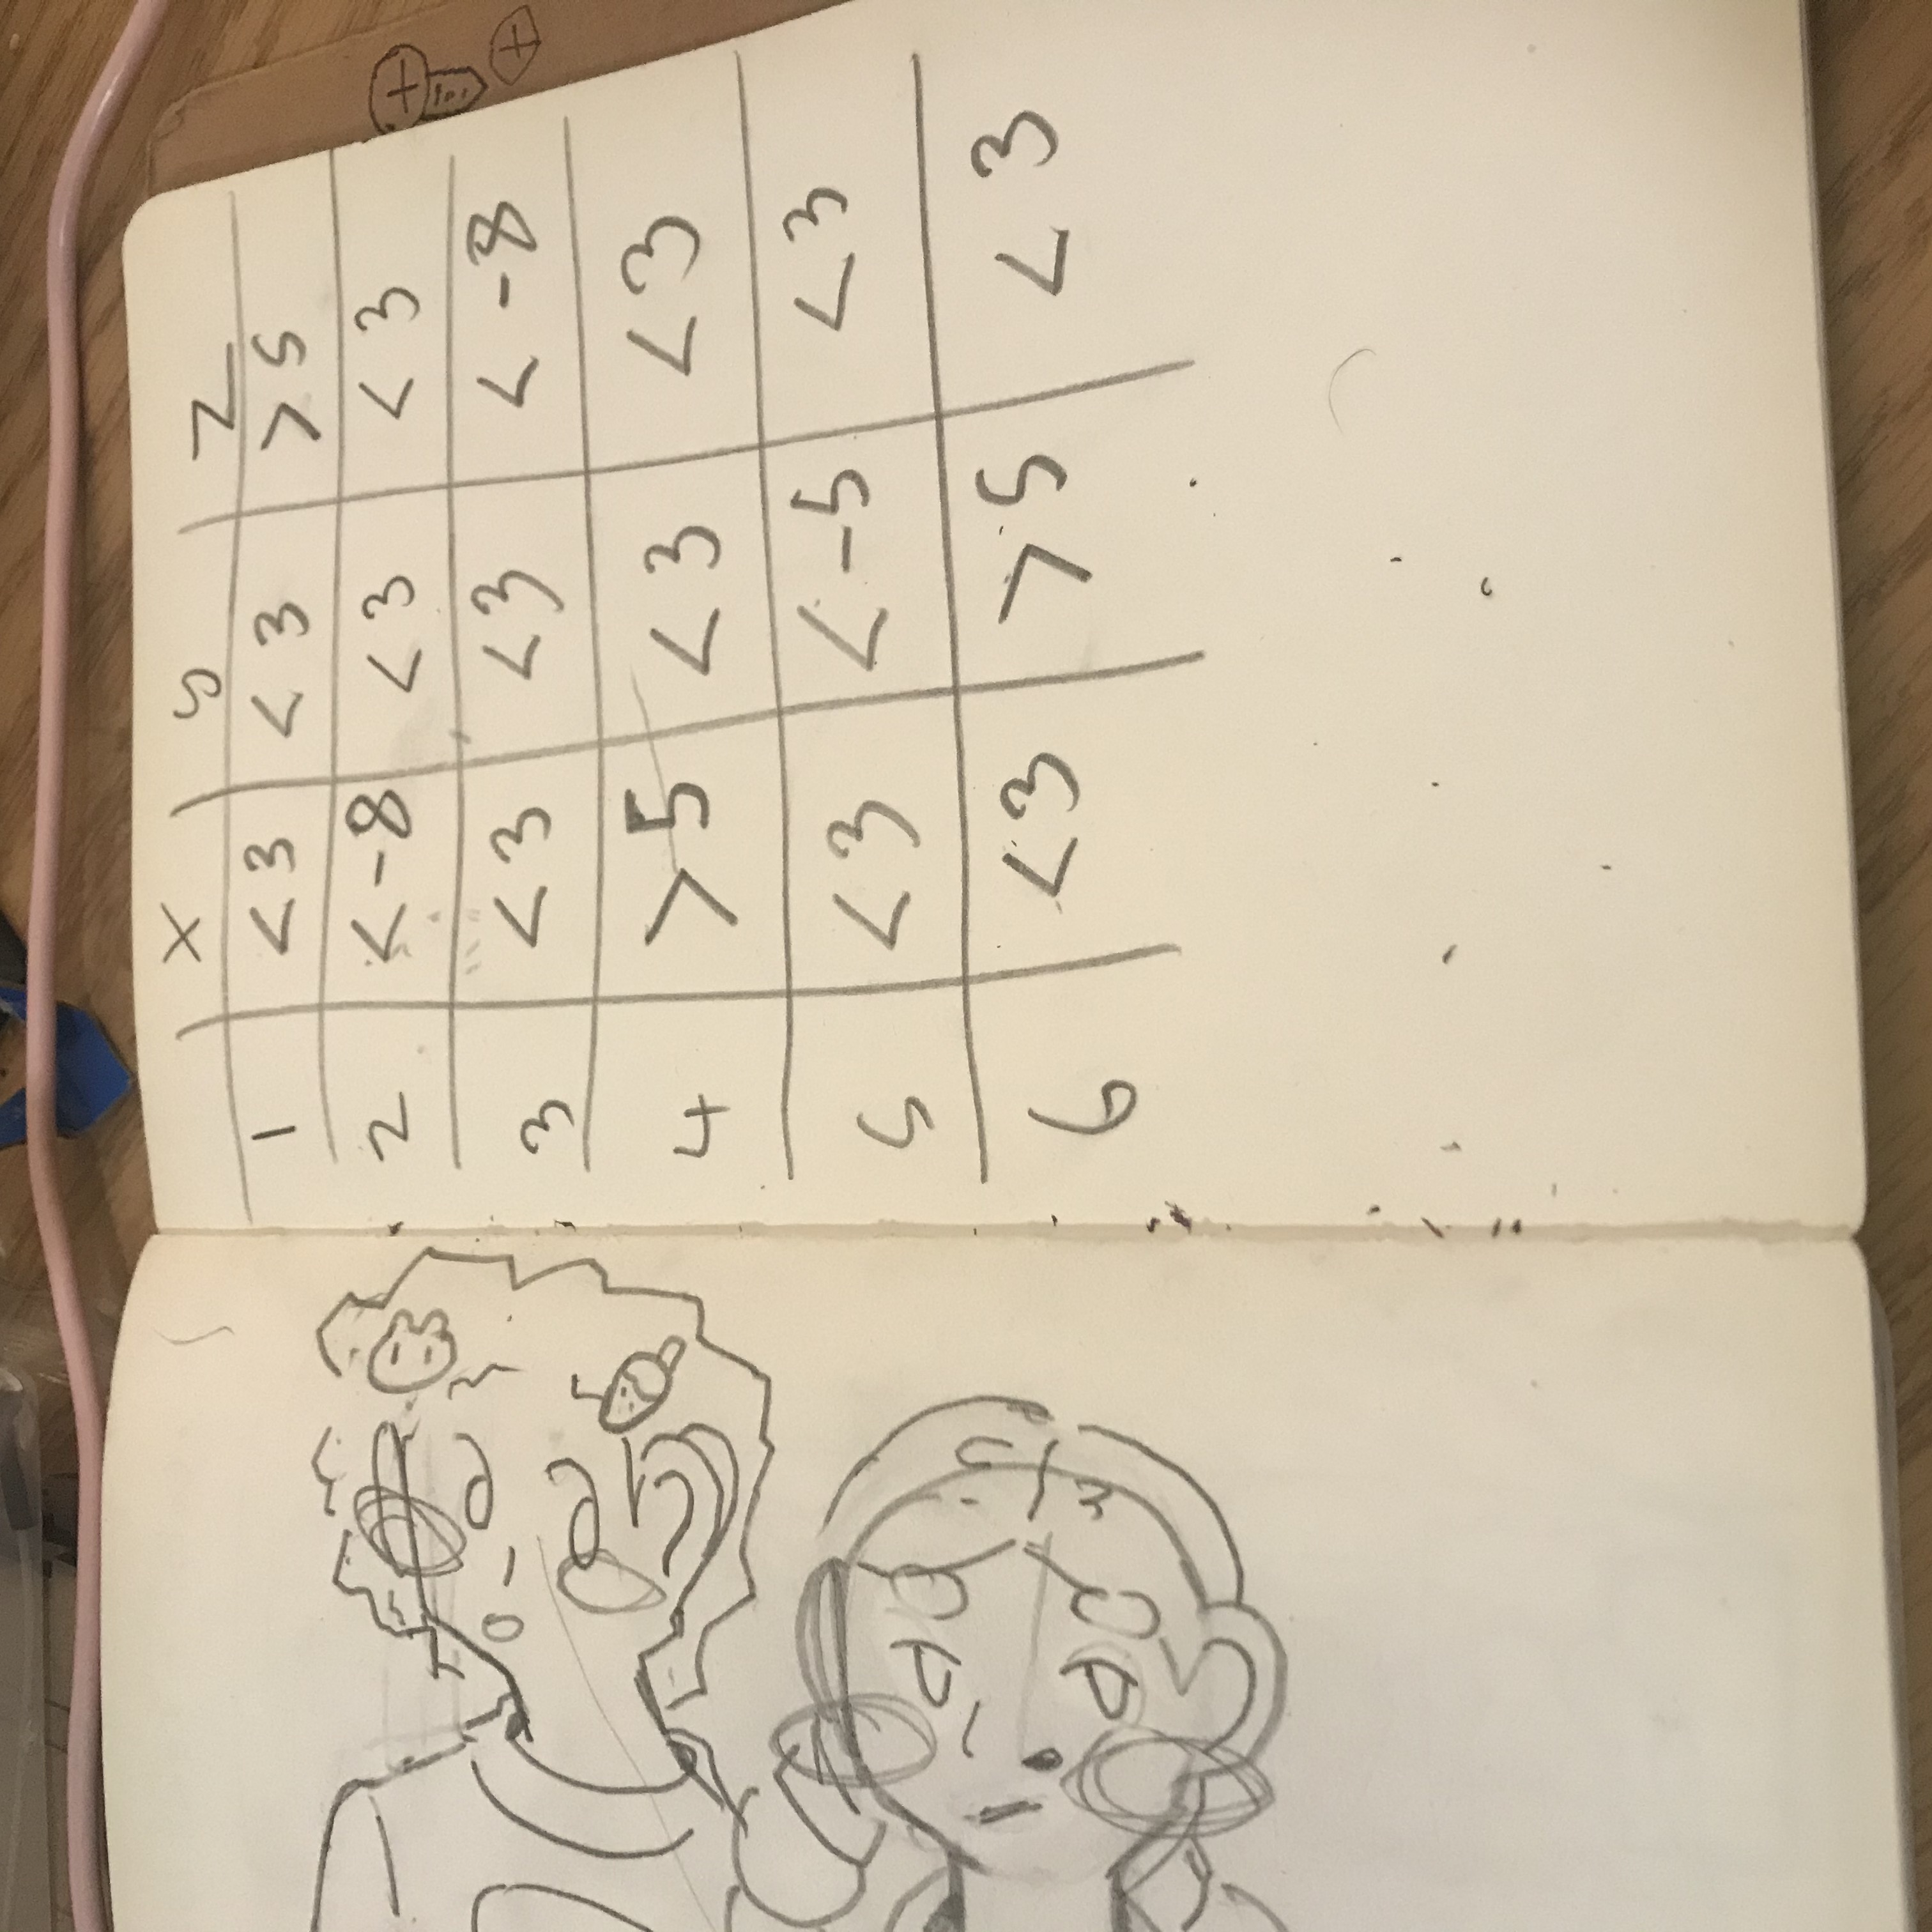 x y z
1 < 3 < 3 > 5
2 < -8 < 3 < 3
3 < 3 < 3 < -8
4 > 5 < 3 < 3
5 < 3 < -5 < 3
6 < 3 > 5 < 3